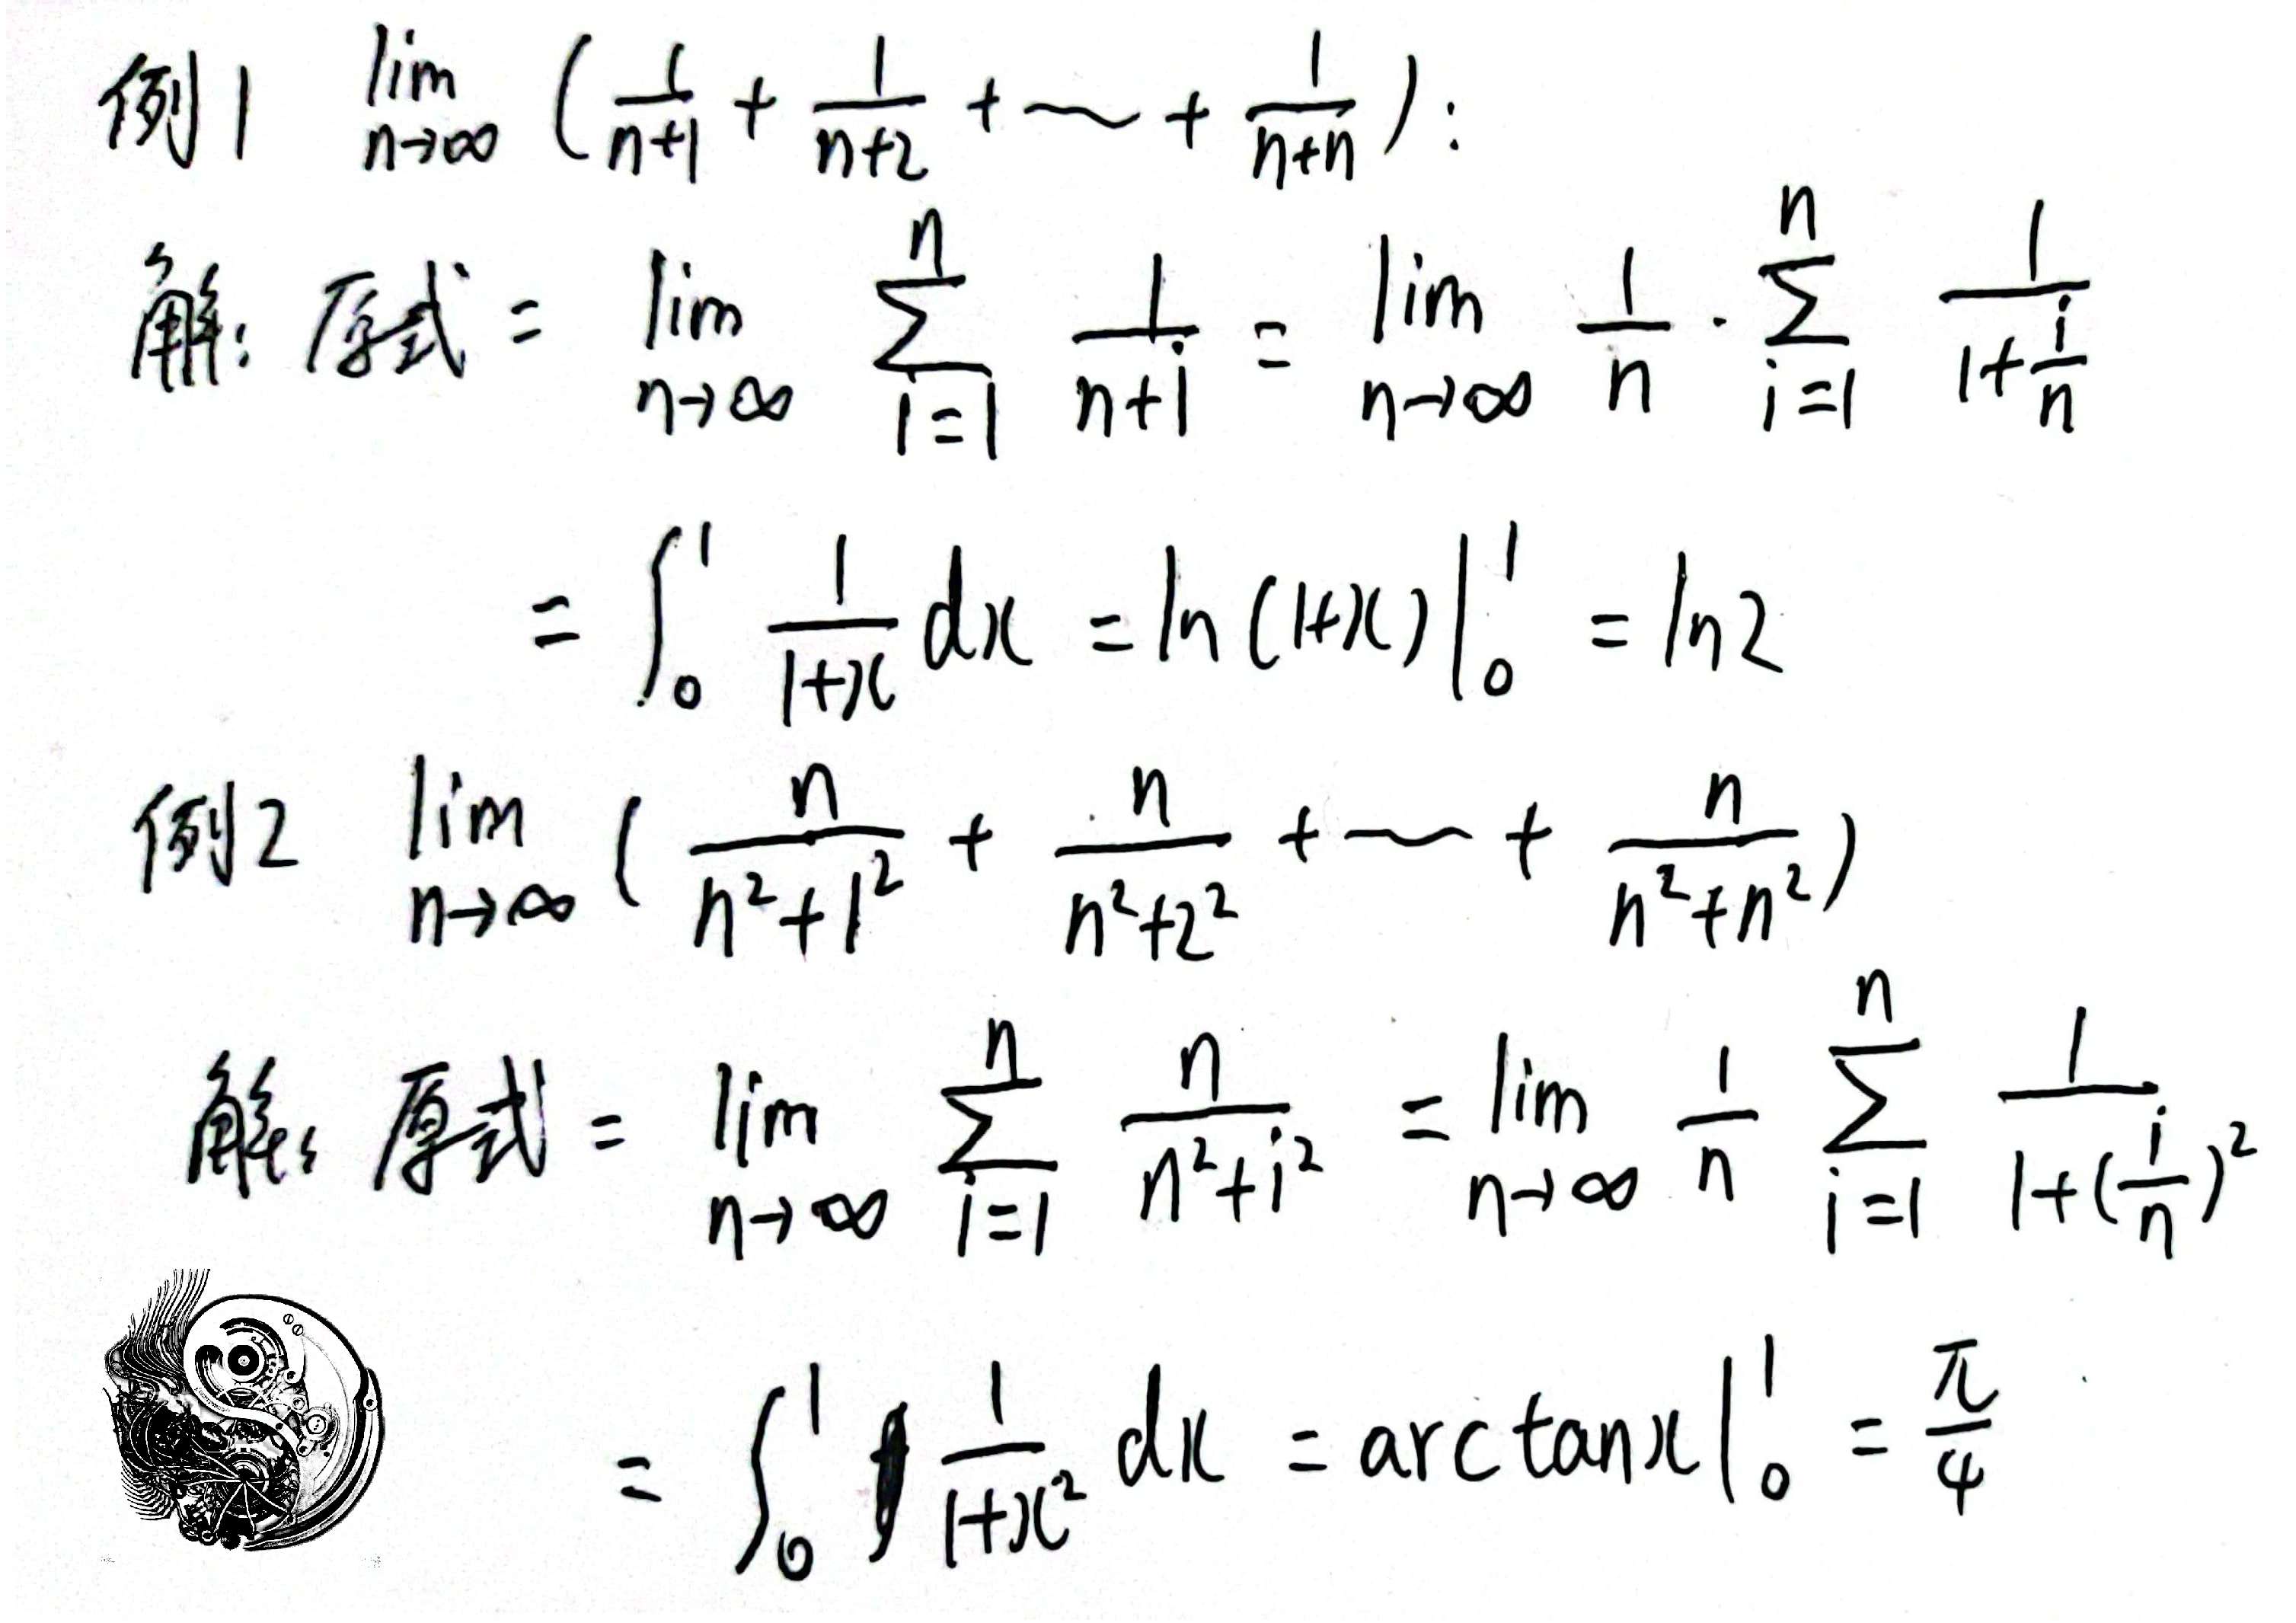 例1 lim n→∞ (1/(n+1) + 1/(n+2) + ⋯ + 1/(n+n)):
解: 原式 = lim n→∞ ∑_{i=1}^{n} 1/(n+i) = lim n→∞ 1/n · ∑_{i=1}^{n} 1/(1+i/n)
= ∫_0^1 1/(1+x) dx = ln(1+x)|_0^1 = ln2
例2 lim n→∞ (n/(n²+1²) + n/(n²+2²) + ⋯ + n/(n²+n²))
解: 原式 = lim n→∞ ∑_{i=1}^{n} n/(n²+i²) = lim n→∞ 1/n ∑_{i=1}^{n} 1/(1+(i/n)²)
= ∫_0^1 1/(1+x²) dx = arctanx|_0^1 = π/4